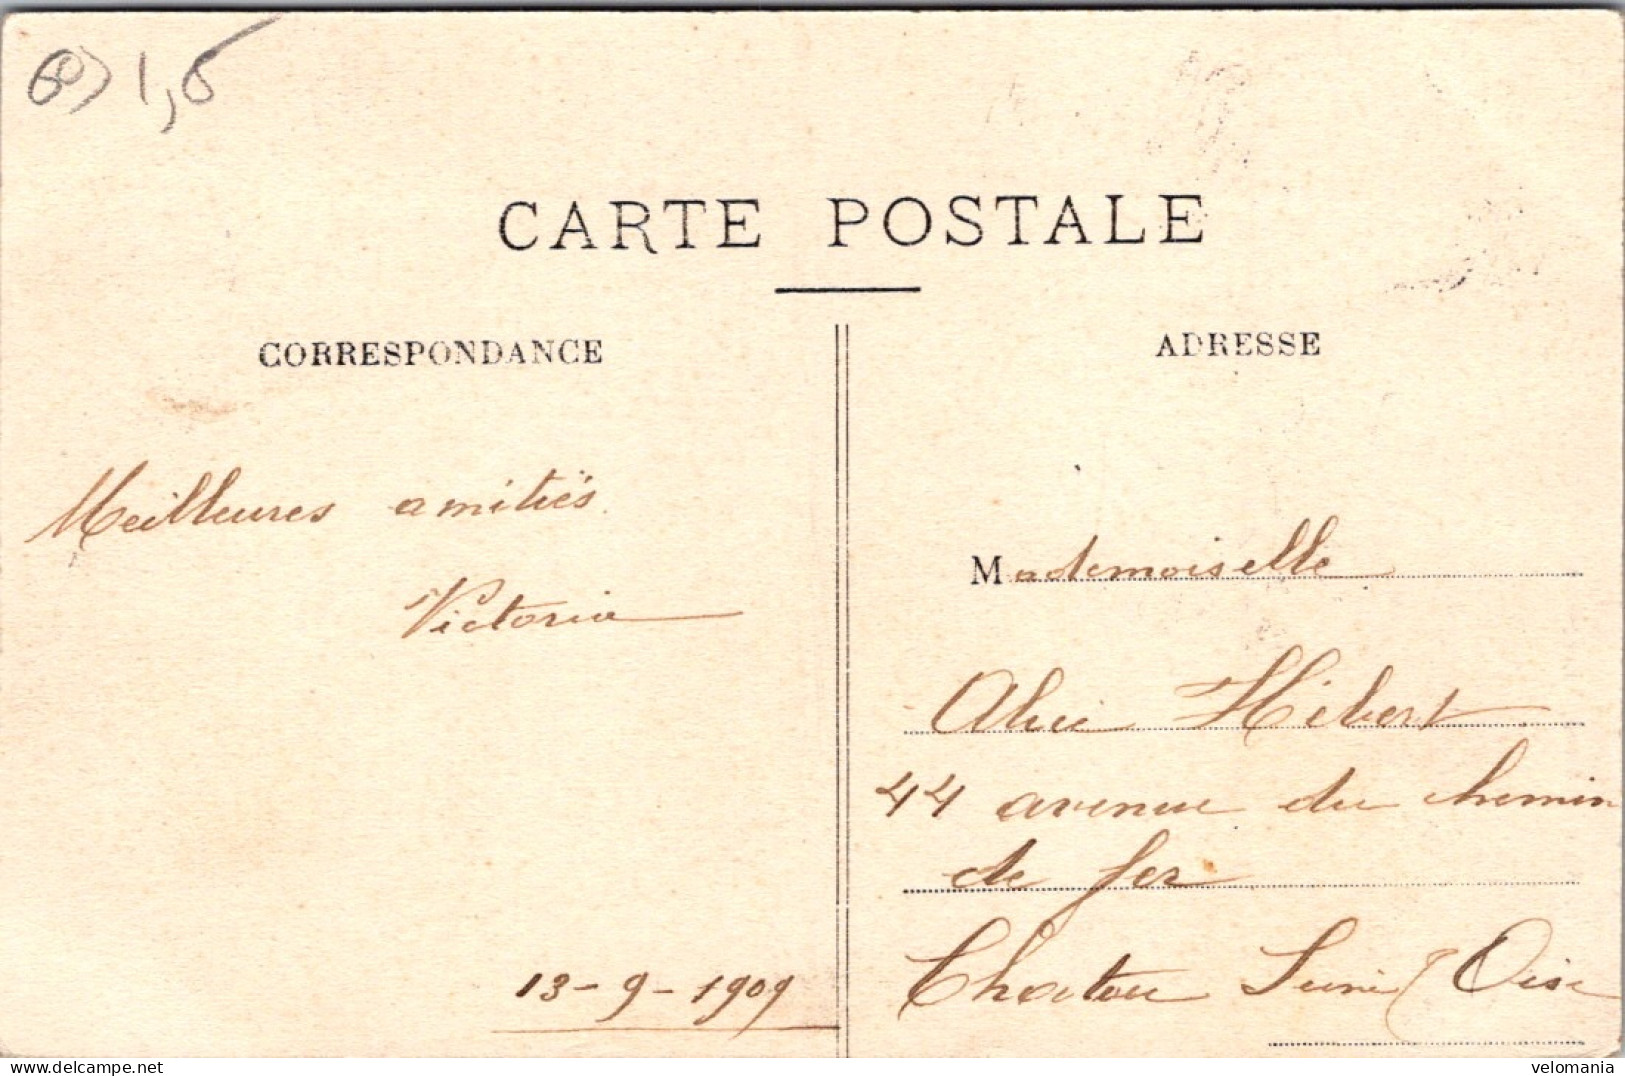 60) 1,5
CARTE POSTALE
CORRESPONDANCE
Meilleures amitiés
Victoria
13-9-1909
ADRESSE
Mademoiselle
Alice Hébert
44 avenue du chemin
de fer
Chatou Seine & Oise
www.delcampe.net
velomania